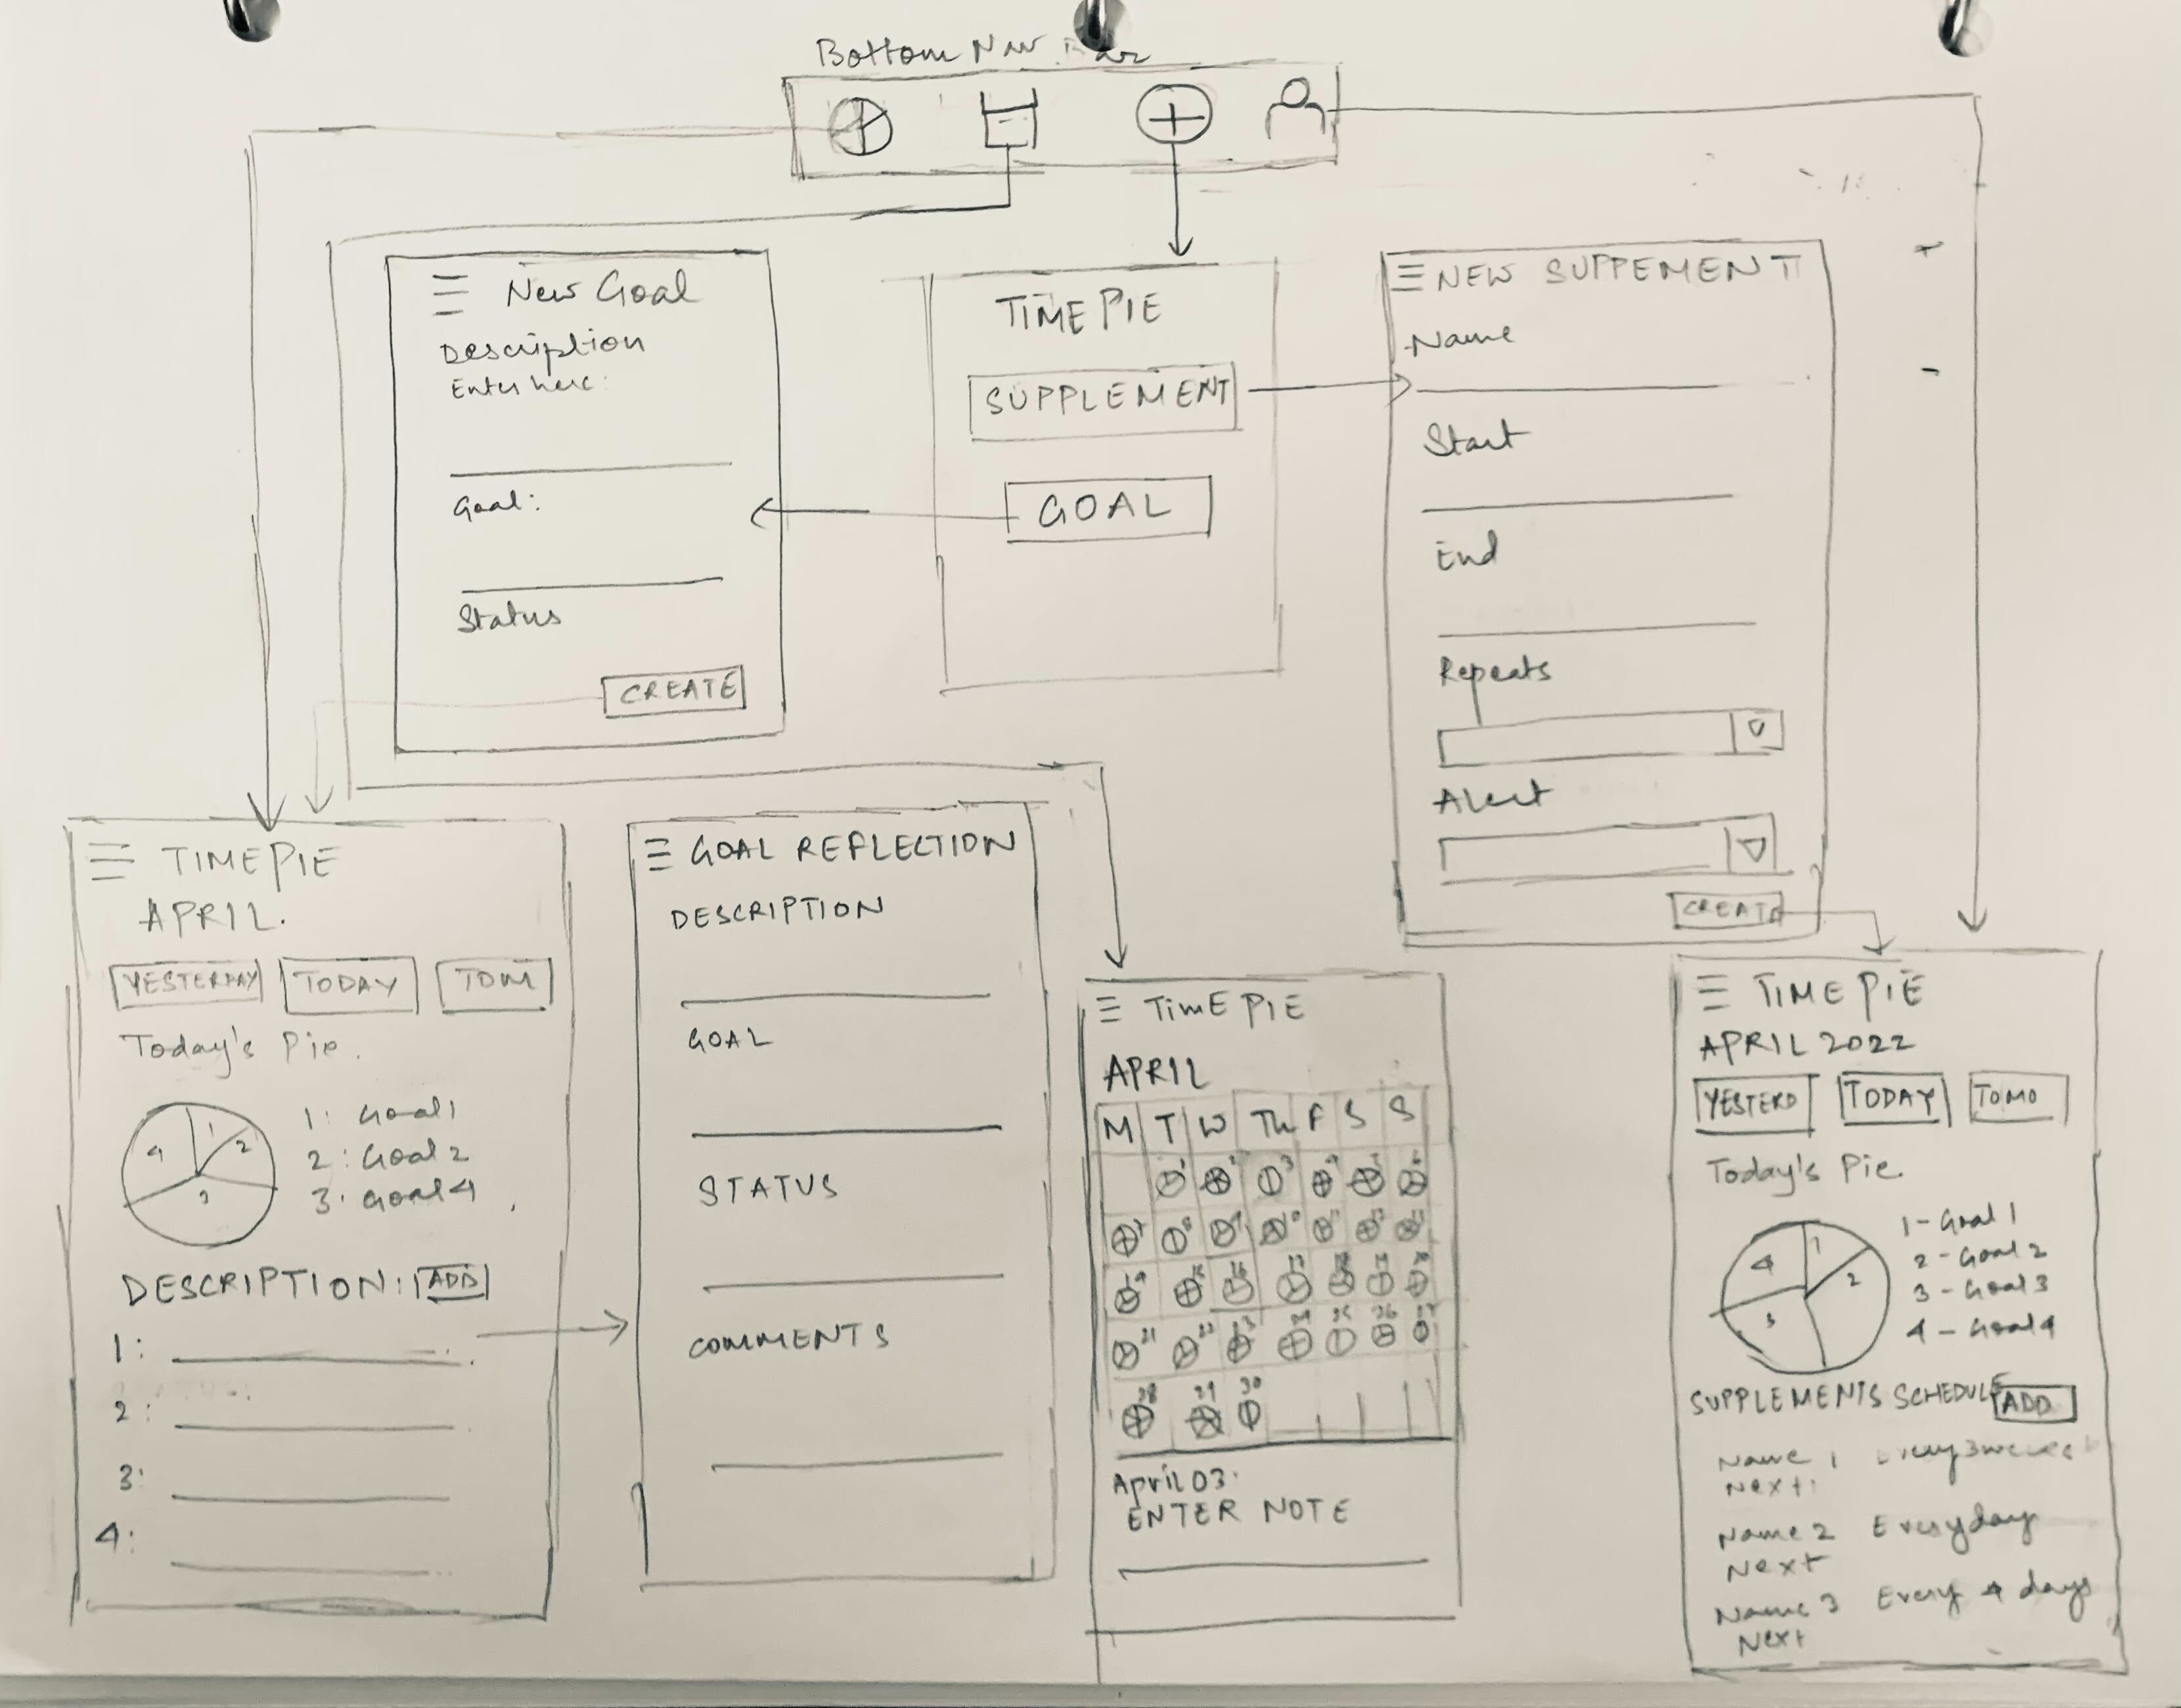 Bottom Nav Bar
New Goal
Description
Enter here:
Goal:
Status
CREATE
TIME PIE
SUPPLEMENT
GOAL
NEW SUPPEMENT
Name
Start
End
Repeats
Alert
CREATE
TIME PIE
APRIL.
YESTERDAY TODAY TOM
Today's Pie.
1 2 3 4
1: Goal 1
2: Goal 2
3: Goal 4
DESCRIPTION: ADD
1:
2:
3:
4:
GOAL REFLECTION
DESCRIPTION
GOAL
STATUS
COMMENTS
TIME PIE
APRIL
M T W Th F S S
1 2 3 4 5 6
7 8 9 10 11 12 13
21 22 23 24 25 26 27
28 29 30
April 03:
ENTER NOTE
TIME PIE
APRIL 2022
YESTERD TODAY TOMO
Today's Pie.
1 2 3 4
1 - Goal 1
2 - Goal 2
3 - Goal 3
4 - Goal 4
SUPPLEMENTS SCHEDULE ADD
Name 1
Next:
Name 2 Everyday
Next
Name 3 Every 4 days
Next